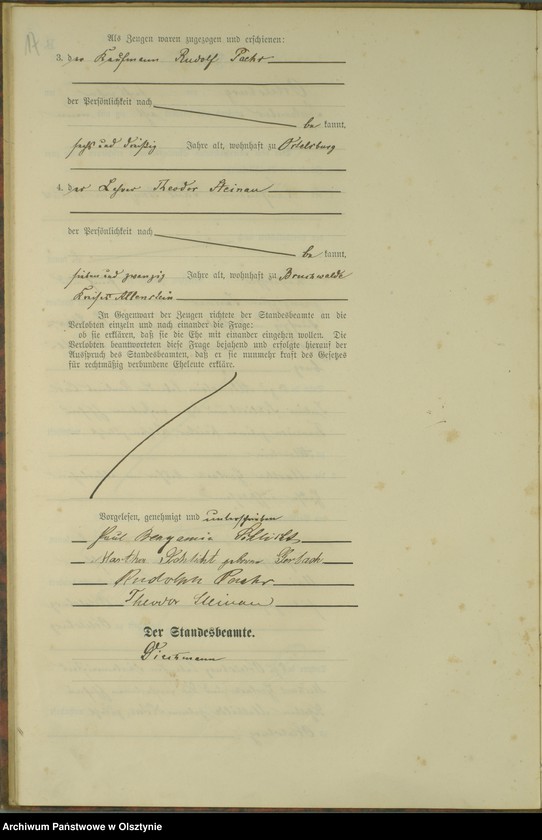 Als Zeugen waren zugezogen und erschienen:
3. der Kaufmann Rudolf
der Persönlichkeit nach
be kannt,
sechs und dreißig Jahre alt, wohnhaft zu Ortelsburg
4. der Lehrer Theodor Steinau
der Persönlichkeit nach
be kannt,
sieben und zwanzig Jahre alt, wohnhaft zu Braunswalde
Kreises Allenstein
In Gegenwart der Zeugen richtete der Standesbeamte an die
Verlobten einzeln und nach einander die Frage:
ob sie erklären, daß sie die Ehe mit einander eingehen wollen. Die
Verlobten beantworteten diese Frage bejahend und erfolgte hierauf der
Ausspruch des Standesbeamten, daß er sie nunmehr kraft des Gesetzes
für rechtmäßig verbundene Eheleute erkläre.
Vorgelesen, genehmigt und unterschrieben
Paul Benjamin Schlicht
Martha Schlicht geborene
Rudolph
Theodor Steinau
Der Standesbeamte.
Archiwum Państwowe w Olsztynie